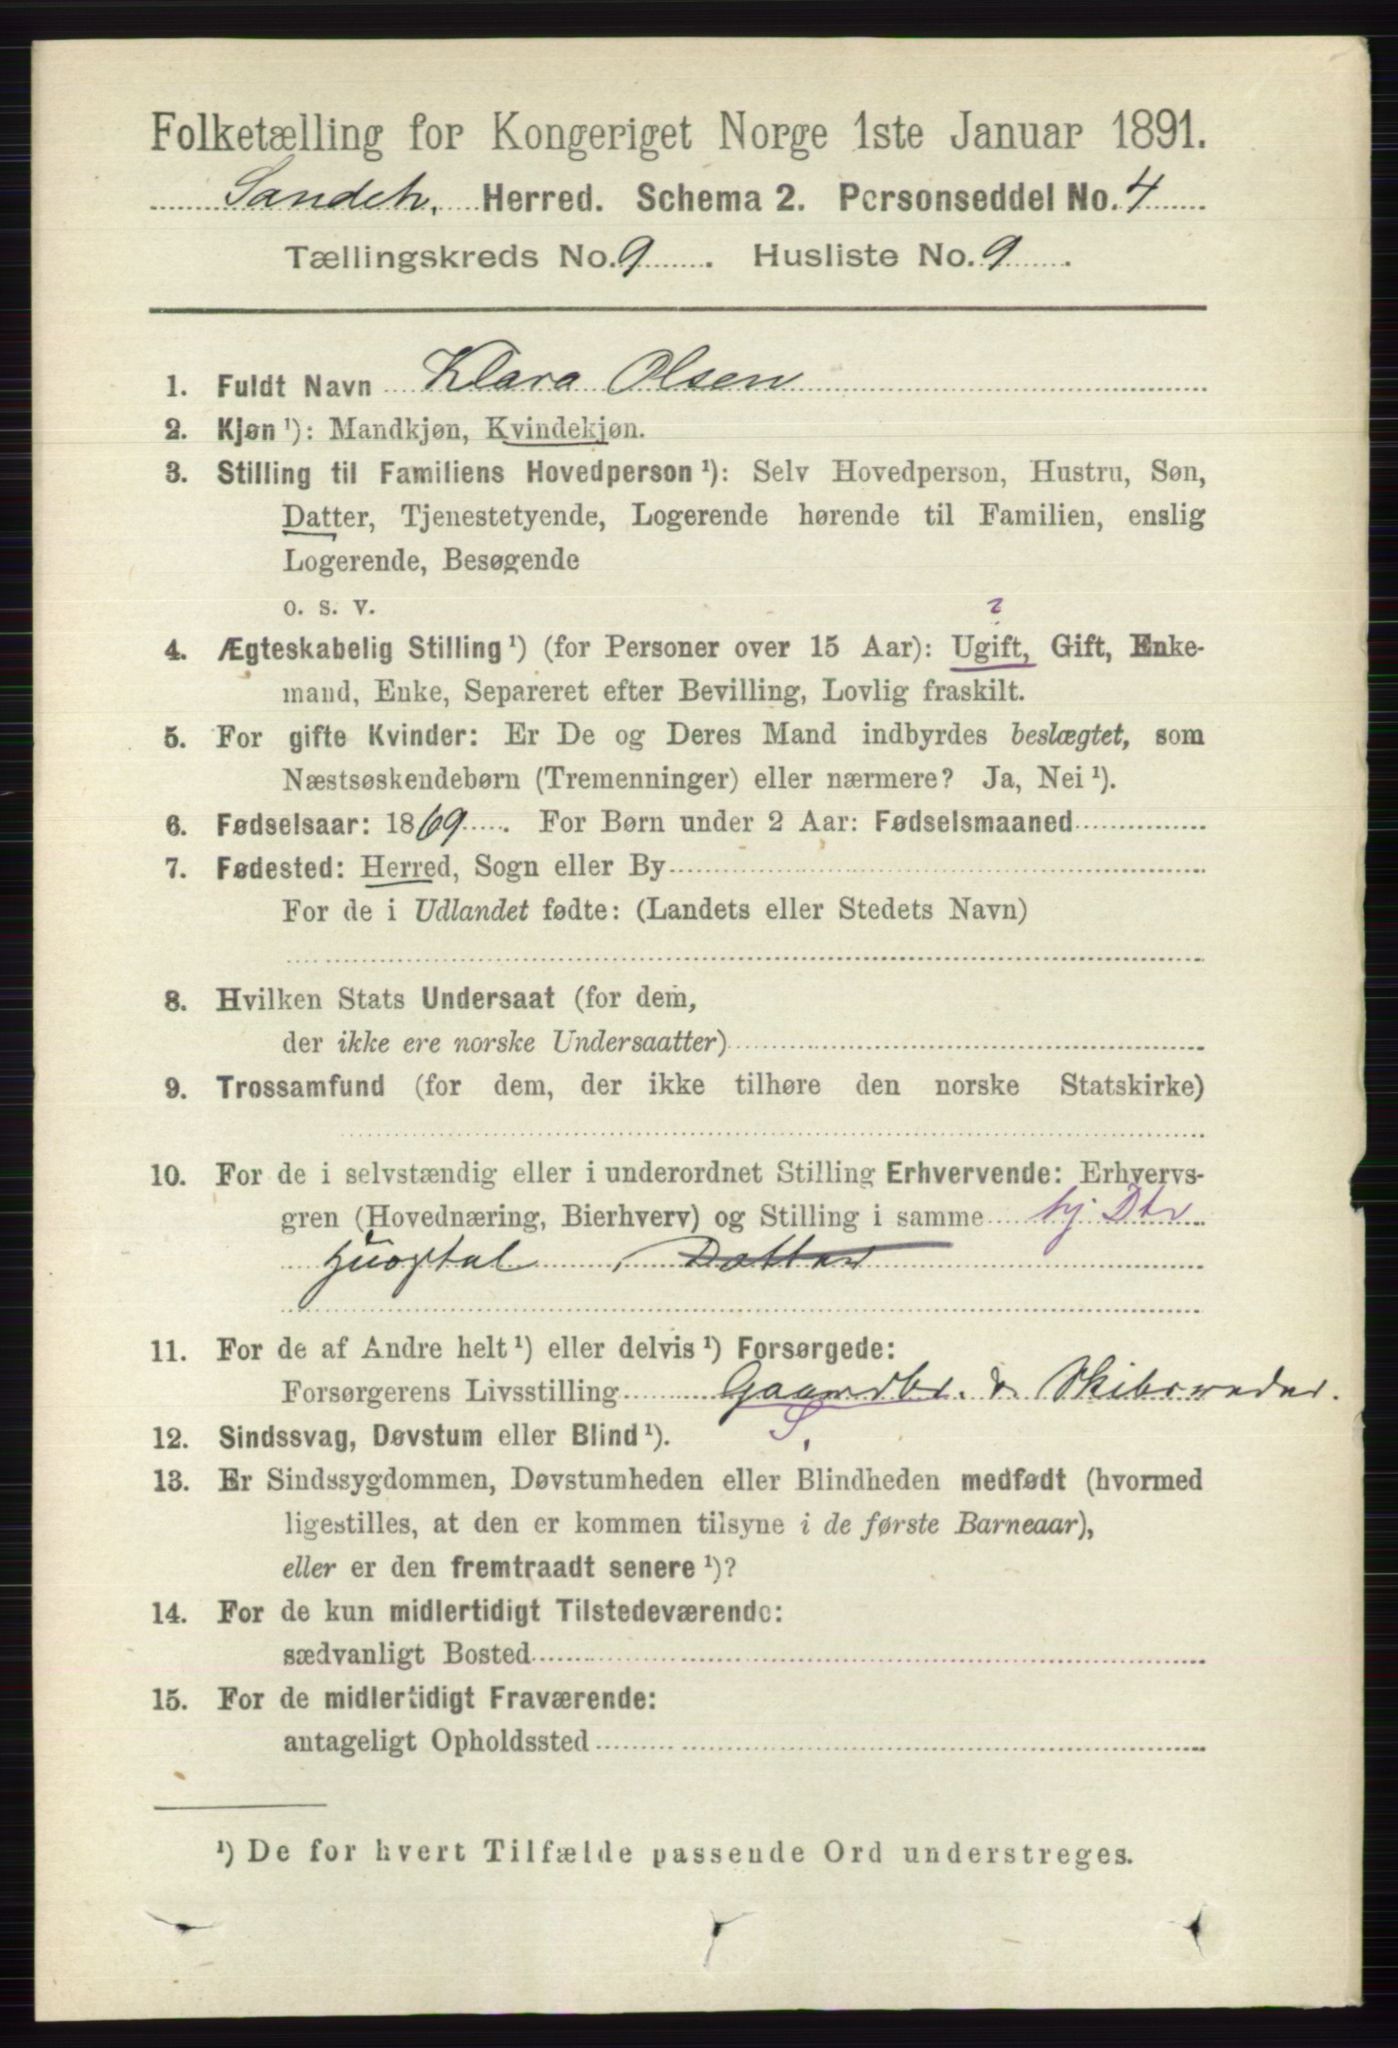 Folketælling for Kongeriget Norge 1ste Januar 1891.
Sandeh. Herred. Schema 2. Personseddel No. 4
Tællingskreds No. 9. Husliste No. 9.
1. Fuldt Navn Klara Olsen
2. Kjøn ¹): Mandkjøn, Kvindekjøn.
3. Stilling til Familiens Hovedperson ¹): Selv Hovedperson, Hustru, Søn,
Datter, Tjenestetyende, Logerende hørende til Familien, enslig
Logerende, Besøgende
o. s. v.
?
4. Ægteskabelig Stilling ¹) (for Personer over 15 Aar): Ugift, Gift, Enke-
mand, Enke, Separeret efter Bevilling, Lovlig fraskilt.
5. For gifte Kvinder: Er De og Deres Mand indbyrdes beslægtet, som
Næstsøskendebørn (Tremenninger) eller nærmere? Ja, Nei ¹).
6. Fødselsaar: 1869. For Børn under 2 Aar: Fødselsmaaned
7. Fødested: Herred, Sogn eller By
For de i Udlandet fødte: (Landets eller Stedets Navn)
8. Hvilken Stats Undersaat (for dem,
der ikke ere norske Undersaatter)
9. Trossamfund (for dem, der ikke tilhøre den norske Statskirke)
10. For de i selvstændig eller i underordnet Stilling Erhvervende: Erhvervs-
gren (Hovednæring, Bierhverv) og Stilling i samme hj. Dtr
Datter
11. For de af Andre helt ¹) eller delvis ¹) Forsørgede:
Forsørgerens Livsstilling Gaardbr. & Skibsreder.
S.
12. Sindssvag, Døvstum eller Blind ¹).
13. Er Sindssygdommen, Døvstumheden eller Blindheden medfødt (hvormed
ligestilles, at den er kommen tilsyne i de første Barneaar),
eller er den fremtraadt senere ¹)?
14. For de kun midlertidigt Tilstedeværende:
sædvanligt Bosted
15. For de midlertidigt Fraværende:
antageligt Opholdssted
¹) De for hvert Tilfælde passende Ord understreges.